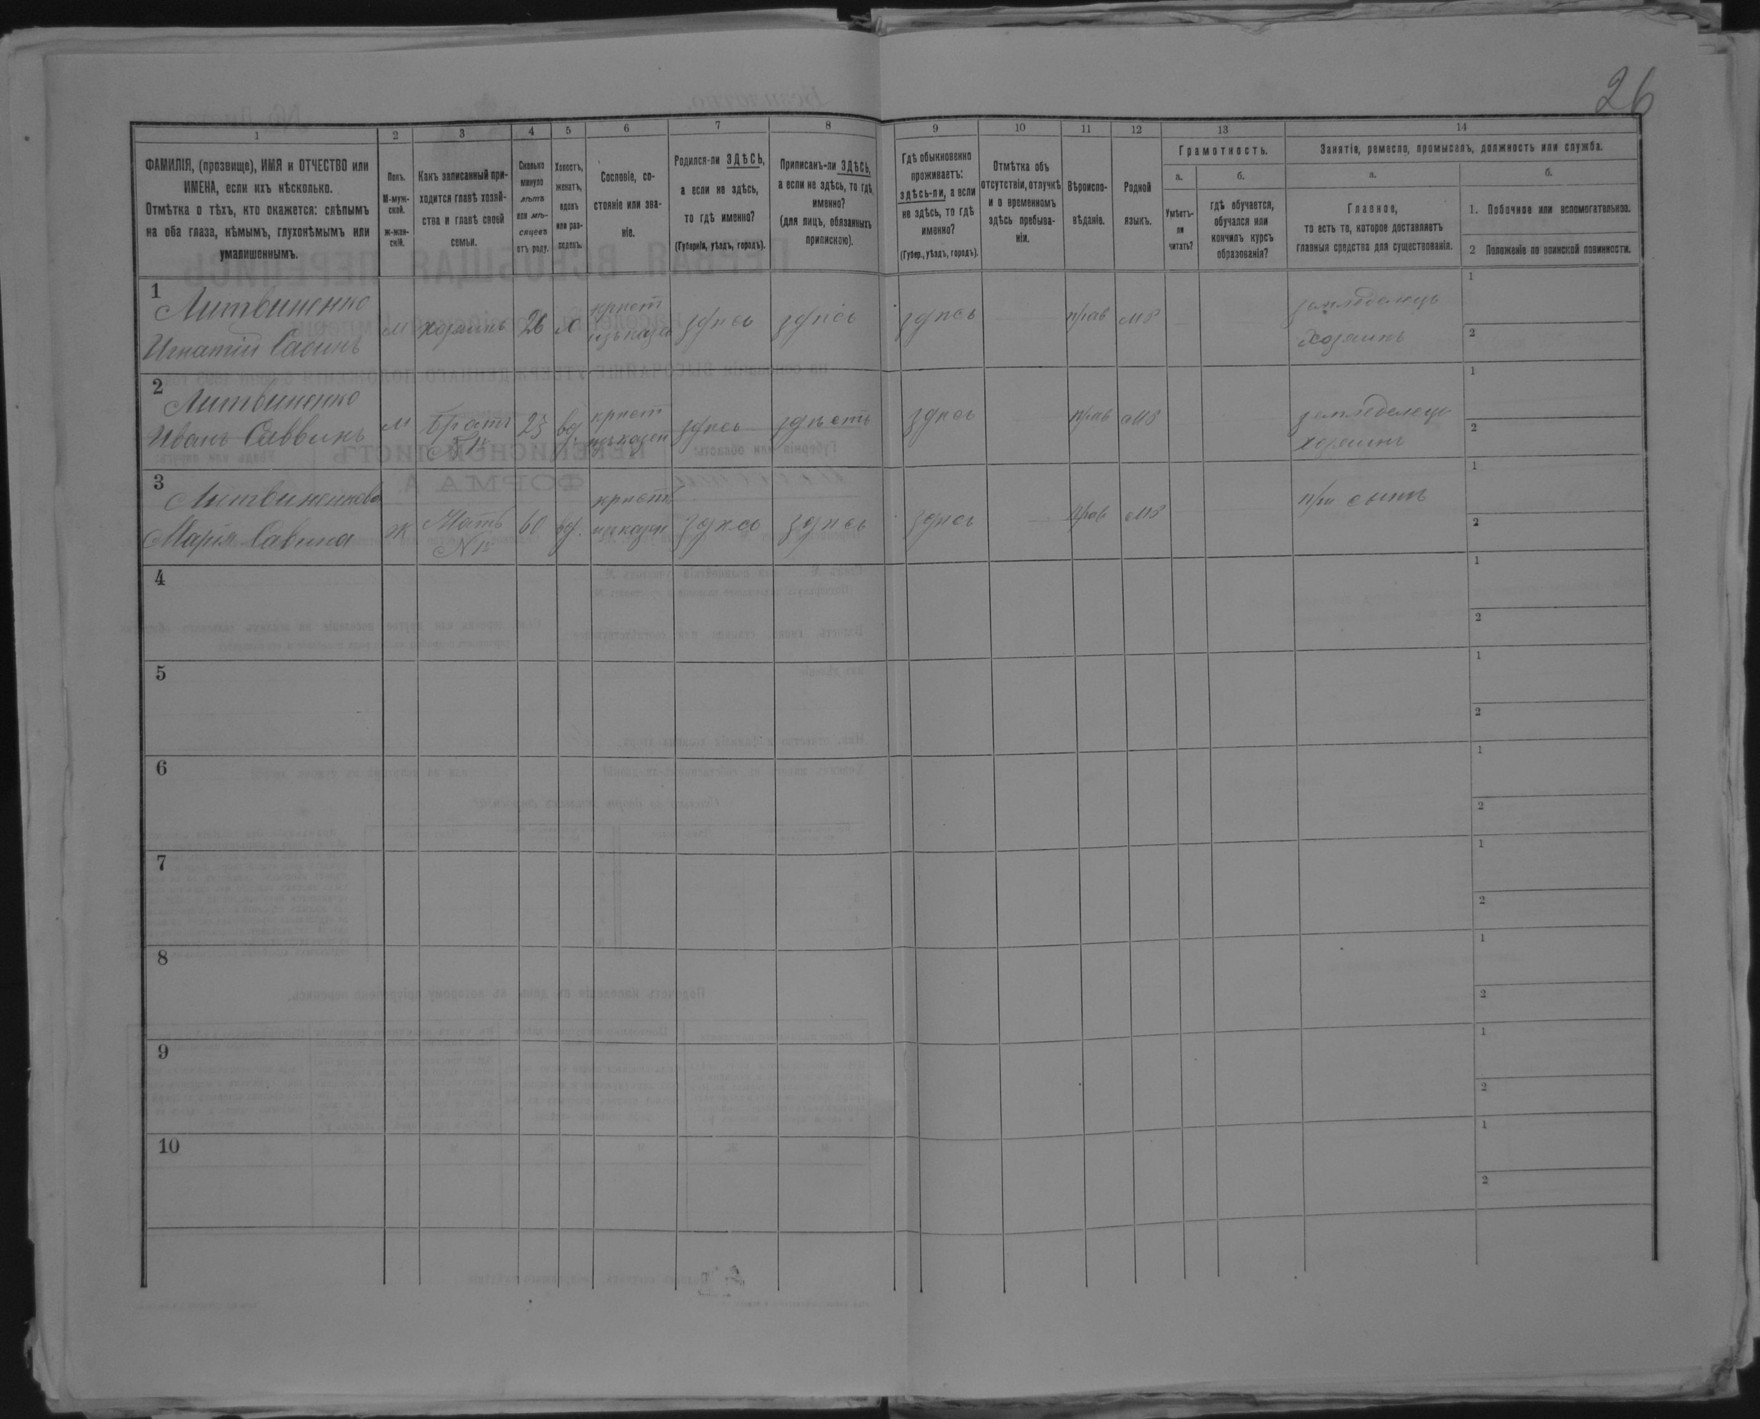 26
1 2 3 4 5 6 7 8 9 10 11 12 13 14
ФАМИЛІЯ, (прозвище), ИМЯ и ОТЧЕСТВО или
ИМЕНА, если ихъ нѣсколько.
Отмѣтка о тѣхъ, кто окажется: слѣпымъ
на оба глаза, нѣмымъ, глухонѣмымъ или
умалишеннымъ.
Полъ.
М-муж-
ской.
ж-жен-
скій.
Какъ записанный при-
ходится главѣ хозяй-
ства и главѣ своей
семьи.
Сколько
минуло
лѣтъ
или мѣ-
сяцевъ
отъ роду.
Холостъ,
женатъ,
вдовъ
или раз-
веденъ.
Сословіе, со-
стояніе или зва-
ніе.
Родился-ли ЗДѢСЬ,
а если не здѣсь,
то гдѣ именно?
(Губернія, уѣздъ, городъ).
Приписанъ-ли ЗДѢСЬ,
а если не здѣсь, то гдѣ
именно?
(для лицъ, обязанныхъ
припискою).
Гдѣ обыкновенно
проживаетъ:
здѣсь-ли, а если
не здѣсь, то гдѣ
именно?
(Губер., уѣздъ, городъ).
Отмѣтка объ
отсутствіи, отлучкѣ
и о временномъ
здѣсь пребыва-
ніи.
Вѣроиспо-
вѣданіе.
Родной
языкъ.
Грамотность.
а.
Умѣетъ-
ли
читать?
б.
гдѣ обучается,
обучался или
кончилъ курсъ
образованія?
Занятіе, ремесло, промыселъ, должность или служба.
а.
Главное,
то есть то, которое доставляетъ
главныя средства для существованія.
б.
1. Побочное или вспомогательное.
2 Положеніе по воинской повинности.
1
Литвиненко
Игнатій Савинъ
м хозяинъ 26 х
крест
здѣсь здѣсь здѣсь прав мр
земледѣлецъ
хозяинъ
1
2
2
Литвиненко
Иванъ Саввинъ
м братъ 23 вд
крест
здѣсь здѣсь здѣсь прав мр
земледѣлецъ
хозяинъ
1
2
3
Литвиненкова
Марія Савина
ж Мать 60 вд.
крест
здѣсь здѣсь здѣсь прав мр
при сынѣ
1
2
4
1
2
5
1
2
6
1
2
7
1
2
8
1
2
9
1
2
10
1
2